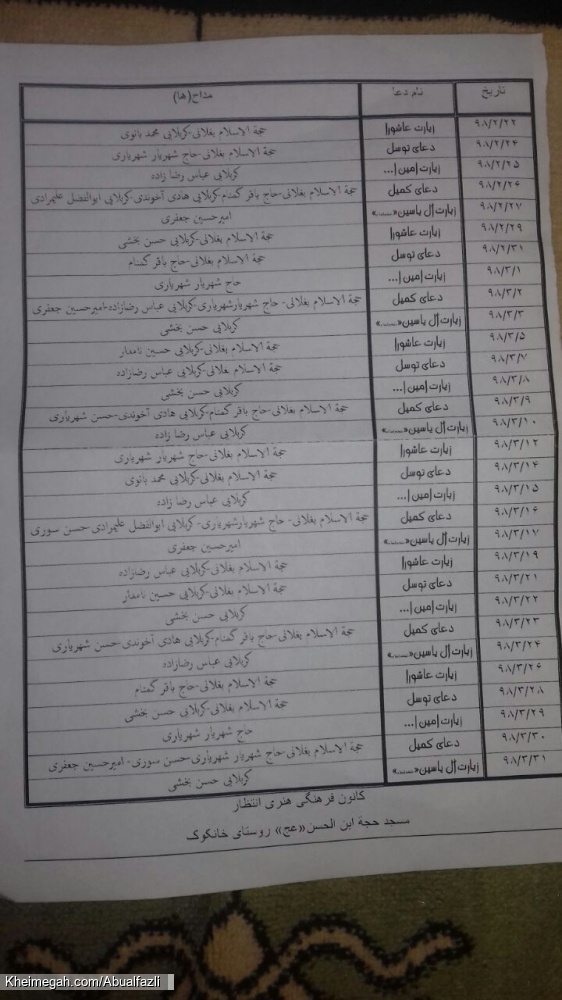 تاریخ نام دعا مداح(ها)
۹۸/۲/۲۲ زیارت عاشورا حجة الاسلام بغلانی-کربلایی محمد بانوی
۹۸/۲/۲۴ دعای توسل حجة الاسلام بغلانی-حاج شهریار شهریاری
۹۸/۲/۲۵ زیارت امین ا... کربلایی عباس رضا زاده
۹۸/۲/۲۶ دعای کمیل حجة الاسلام بغلانی-حاج باقر گمنام-کربلایی هادی آخوندی-کربلایی ابوالفضل علیمرادی
۹۸/۲/۲۷ زیارت آل یاسین«......» امیرحسین جعفری
۹۸/۲/۲۹ زیارت عاشورا حجة الاسلام بغلانی-کربلایی حسن بخشی
۹۸/۲/۳۱ دعای توسل حجة الاسلام بغلانی-حاج باقر گمنام
۹۸/۳/۱ زیارت امین ا... حاج شهریار شهریاری
۹۸/۳/۲ دعای کمیل حجة الاسلام بغلانی- حاج شهریارشهریاری-کربلایی عباس رضازاده-امیرحسین جعفری
۹۸/۳/۳ زیارت آل یاسین«......» کربلایی حسن بخشی
۹۸/۳/۵ زیارت عاشورا حجة الاسلام بغلانی-کربلایی حسین نامدار
۹۸/۳/۷ دعای توسل حجة الاسلام بغلانی-کربلایی عباس رضازاده
۹۸/۳/۸ زیارت امین ا... کربلایی حسن بخشی
۹۸/۳/۹ دعای کمیل حجة الاسلام بغلانی-حاج باقر گمنام-کربلایی هادی آخوندی-حسن شهریاری
۹۸/۳/۱۰ زیارت آل یاسین«......» کربلایی عباس رضا زاده
۹۸/۳/۱۲ زیارت عاشورا حجة الاسلام بغلانی-حاج شهریار شهریاری
۹۸/۳/۱۴ دعای توسل حجة الاسلام بغلانی-کربلایی محمد بانوی
۹۸/۳/۱۵ زیارت امین ا... کربلایی عباس رضا زاده
۹۸/۳/۱۶ دعای کمیل حجة الاسلام بغلانی- حاج شهریارشهریاری- کربلایی ابوالفضل علیمرادی-حسن سوری
۹۸/۳/۱۷ زیارت آل یاسین«......» امیرحسین جعفری
۹۸/۳/۱۹ زیارت عاشورا حجة الاسلام بغلانی-کربلایی عباس رضازاده
۹۸/۳/۲۱ دعای توسل حجة الاسلام بغلانی-کربلایی حسین نامدار
۹۸/۳/۲۲ زیارت امین ا... کربلایی حسن بخشی
۹۸/۳/۲۳ دعای کمیل حجة الاسلام بغلانی-حاج باقر گمنام-کربلایی هادی آخوندی-حسن شهریاری
۹۸/۳/۲۴ زیارت آل یاسین«......» کربلایی عباس رضازاده
۹۸/۳/۲۶ زیارت عاشورا حجة الاسلام بغلانی-حاج باقر گمنام
۹۸/۳/۲۸ دعای توسل حجة الاسلام بغلانی-کربلایی حسن بخشی
۹۸/۳/۲۹ زیارت امین ا... حاج شهریار شهریاری
۹۸/۳/۳۰ دعای کمیل حجة الاسلام بغلانی-حاج شهریار شهریاری-حسن سوری- امیرحسین جعفری
۹۸/۳/۳۱ زیارت آل یاسین«......» کربلایی حسن بخشی
کانون فرهنگی هنری انتظار
مسجد حجة ابن الحسن«عج» روستای خانکوک
Kheimegah.com/Abualfazli